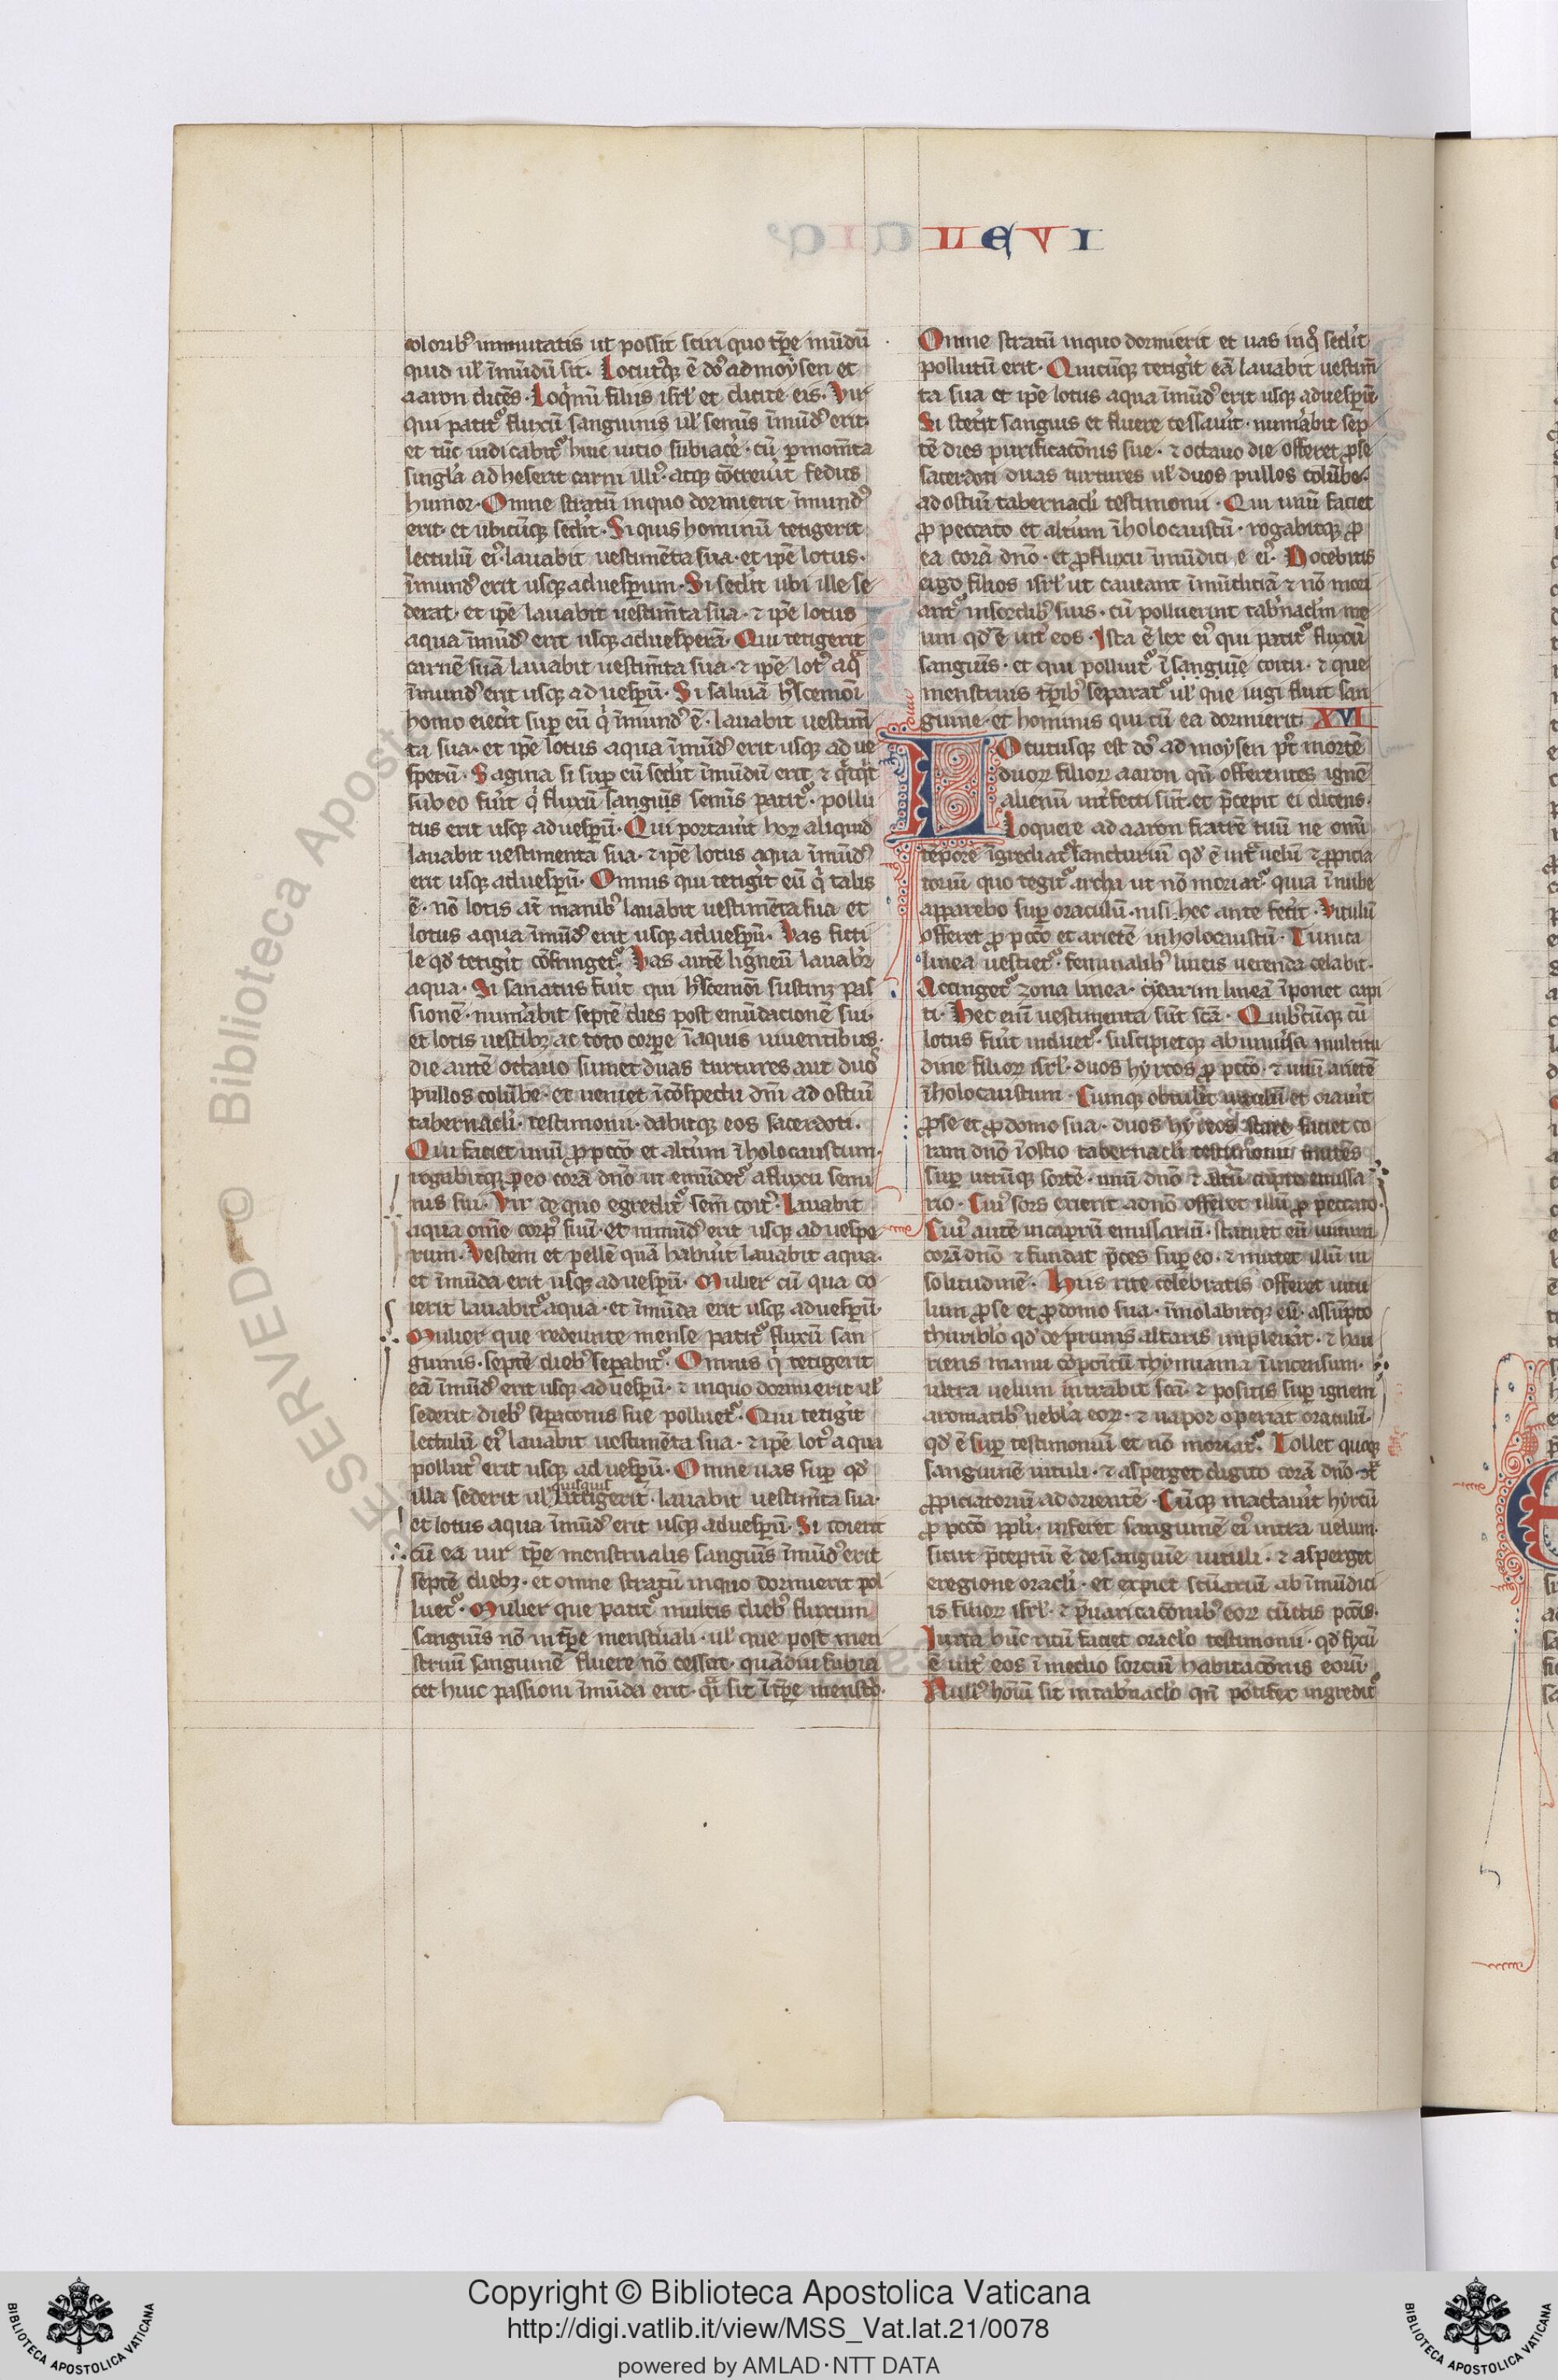 LEVI
coloribꝫ immutatis ut possit sciri quo tp̄e mūdū
quid ul' īmūdū sit. Locutꝰqꝫ ē dn̄s ad moysen et
aaron dicēs. Loq̄mī filiis isrl' et dicite eis. Vir
qui patitᷣ fluxū sanguinis ul' semīs īmūdꝰ erit.
et tūc iudicabitᷣ huic uicio subiacē. cū p̄ momīta
singl'a adheserit carni illiꝰ. atqꝫ cōcreuīt fedus
humor. Omne stratū in quo dormierit īmundꝰ
erit. et ubicūqꝫ sedīt. Si quis hominū tetigerit
lectulū eiꝰ. lauabit uestimēta sua. et ip̄e lotus.
īmundꝰ erit usqꝫ ad uesp̄um. Si sedīt ubi ille se
derat. et ip̄e lauabit uestim̄ta sua. ⁊ ip̄e lotus
aqua īmūdꝰ erit usqꝫ ad uesperā. Qui tetigerit
carnē suā lauabit uestim̄ta sua. ⁊ ip̄e lotꝰ aq̄
īmundꝰ erit usqꝫ ad uesp̄ū. Si saliuā hꝰscemōi
homo eiecīt sup̄ eū q̄ īmundꝰ ē. lauabit uestim̄
ta sua. et ip̄e lotus aqua īmūdꝰ erit usqꝫ ad ue
sperū. Sagma si sup̄ eū sedīt īmūdū erit ⁊ q̄cq̄d
sub eo fuīt q̄ fluxū sanguīs semīs patitᷣ. pollu
tus erit usqꝫ ad uesp̄ū. Qui portauīt hoꝝ aliquid
lauabit uestimenta sua. ⁊ ip̄e lotus aqua īmūdꝰ
erit usqꝫ ad uesp̄ū. Omnis qui tetigīt eū q̄ talis
ē. nō lotis an̄ manibꝫ lauabit uestimēta sua et
lotus aqua īmūdꝰ erit usqꝫ ad uesp̄ū. Vas ficti
le qd' tetigīt cōfringetᷣ. Vas autē ligneū lauabᷣ
aqua. Si sanatus fuīt qui hꝰscemōi sustinꝫ pas
sionē. numābit septē dies post emūdacionē sui.
et lotis uestibꝫ ac toto corpe ī aquis uiuentibus.
die autē octauo sumet duas turtures aut duoˢ
pullos colūbe. et ueniet ī cōspectu dn̄i ad ostiū
tabernacl'i. testimonii. dabitqꝫ eos sacerdoti.
Qui faciet unū p̄ pccō et altīum ī holocaustum.
rogabitqꝫ p̄ eo corā dn̄o ut emūdetᷣ a fluxu semi
nis sui. Vir de quo egreditᷣ sem̄ coitꝰ. Lauabit
aqua om̄e corpꝰ suū. et immūdꝰ erit usqꝫ ad uespe
rum. Vestem et pellē quā habuīt lauabit aqua.
et īmūda erit usqꝫ ad uesp̄ū. Mulier cū qua co
ierit lauabitᷣ aqua. et īmūda erit usqꝫ ad uesp̄ū.
Mulier que redeunte mense patitᷣ fluxū san
guinis. septē diebꝫ sep̄abitᷣ. Omnis q̄ tetigerit
eā īmūdꝰ erit usqꝫ ad uesp̄ū. ⁊ in quo dormierit ul'
sederit diebꝫ sep̄acōnis sue polluetᷣ. Qui tetigīt
lectulū eiꝰ lauabit uestimēta sua. ⁊ ip̄e lotꝰ aqua
pollutꝰ erit usqꝫ ad uesp̄ū. Omne uas sup̄ qd'
quisquis
illa sederit ul' attigerit. lauabit uestim̄ta sua.
et lotus aqua īmūdꝰ erit usqꝫ ad uesp̄ū. Si coierit
cū ea uir tp̄e menstrualis sanguīs īmūdꝰ erit
septē diebꝫ. et omne stratū in quo dormierit pol
luetᷣ. Mulier que patitᷣ multis diebꝫ fluxum
sanguīs nō in tp̄e menst'uali. ul' que post men
struū sanguinē fluere nō cessat. quādiu subia
cet huic passioni īmūda erit. q̄i sit ī tp̄e menst'o.
Omne stratū in quo dormierit et uas in q̄ sedīt
pollutū erit. Quicūqꝫ tetigīt eā lauabit uestim̄
ta sua et ip̄e lotus aqua īmūdꝰ erit usqꝫ ad uesp̄ū
Si stetīt sanguis et fluere cessauīt. numābit sep
tē dies purificacōnis sue. ⁊ octauo die offeret p̄ se
sacerdoti duas turtures ul' duos pullos colūbe.
ad ostiū tabernacl'i testimonii. Qui unū faciet
p̄ peccato et altīum ī holocaustū. rogabitqꝫ p̄
ea corā dn̄o. et p̄ fluxu īmūdici e eiꝰ. Docebitis
ergo filios isrl' ut caueant īmūditiā ⁊ nō mori
antᷣ in sordibꝫ suis. cū polluerint tab'nacl'm me
um qd' ē int' eos. Ista ē lex eiꝰ qui patitᷣ fluxū
sanguīs. et qui polluitᷣ ī sanguīe coitu. ⁊ que
menstruis tp̄ibꝫ separatᷣ ul' que iugi fluit san
guine. et hominis qui cū ea dormierit. XVI
Locutusqꝫ est dn̄s ad moysen pt̄ mortē
duoꝝ filioꝝ aaron qn̄ offerentes ignē
alienū int'fecti sūt. et p̄cepit ei dicens.
Loquere ad aaron fratrē tuū ne om̄i
tēpore īgrediatᷣ sanctuariū qd' ē int' uelū ⁊ p̄picia
toriū quo tegitᷣ archa ut nō moriatᷣ. quia ī nube
apparebo sup̄ oraculū. nisi hec ante fecīt. Vitulū
offeret p̄ pccō et arietē in holocaustū. Tunica
linea uestietᷣ. feminalibꝫ lineis uerenda celabit.
Accingetᷣ zona linea. cydarim lineā īponet capi
ti. Hec eni uestimenta sūt scā. Quibꝫ cūqꝫ cū
lotus fuīt induetᷣ. suscipietqꝫ ab uniūsa multitu
dine filioꝝ isrl'. duos hyrcos p̄ pccō. ⁊ unū arietē
ī holocaustum. Cumqꝫ obtulīt uitulū et orauīt
p̄ se et p̄ domo sua. duos hyrcos stare faciet co
ram dn̄o ī ostio tabernacl'i testimonii mittēs
sup̄ utrūqꝫ sortē. unū dn̄o ⁊ altū capro emissa
rio. Cuiꝰ sors exierit a dn̄o offeret illū p̄ peccato.
Cuiꝰ autē in caprū emissariū. statuet eū uiuum
corā dn̄o ⁊ fundat p̄ces sup̄ eo. ⁊ mittet illū in
solitudinē. Hiis rite celebratis offeret uitu
lum p̄ se et p̄ domo sua. īmolabitqꝫ eū. assūpto
thuribl'o qd' de prunis altaris impleuāt. ⁊ hau
riens manu cōpo'tū thymiama ī incensum.
ultra uelum intrabit scā. ⁊ positis sup̄ ignem
aromatibꝫ nebl'a eoꝝ. ⁊ uapor operiat oraculū.
qd' ē sup̄ testimoniū et nō moriatᷣ. Tollet quoqꝫ
sanguinē uituli. ⁊ asperget digito corā dn̄o
p̄piciatoriū ad orientē. Cūqꝫ mactauīt hyrcū
p̄ pccō pp̄li. inferet sanguinē eiꝰ intra uelum.
sicut p̄ceptū ē de sanguīe uituli. ⁊ asperget
e regione oracl'i. et expiet sc̄uariū ab īmūdici
is filioꝝ isrl'. ⁊ p̄uaricacōnibꝫ eoꝝ cūctis pccīs.
Iuxta hūc ritū faciet oracl'o testimonii. qd' fixū
ē int' eos ī medio sorciū habitacōnis eorū.
Nullꝰ hoīum sit in tab'nacl'o qn̄ pōtifex ingreditᷣ
RESERVED © Biblioteca Apostolica Vaticana
Copyright © Biblioteca Apostolica Vaticana
http://digi.vatlib.it/view/MSS_Vat.lat.21/0078
powered by AMLAD·NTT DATA
BIBLIOTECA APOSTOLICA VATICANA
BIBLIOTECA APOSTOLICA VATICANA